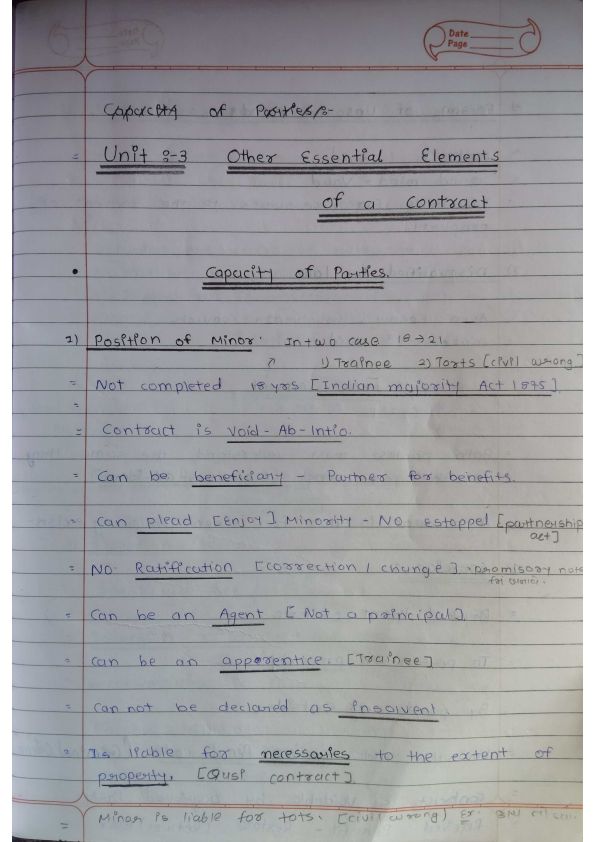 Date
Page
Capacity of Parties:-
= Unit :-3 Other Essential Elements
of a Contract
• Capacity of Parties.
1) Position of Minor. In two case 18 → 21
1) Trainee 2) Torts [civil wrong]
= Not completed 18 yrs [Indian majority Act 1875].
=
= Contract is Void - Ab - Intio.
= Can be beneficiany - Partner for benefits.
= Can plead [Enjoy] Minority - No estoppel [partnership
act]
= No Ratification [correction / change] promisory note
= Can be an Agent [Not a principal]
= Can be an apprentice [Trainee]
= Can not be declared as insolvent.
= Is liable for necessaries to the extent of
property. [Qusi contract].
= Minor is liable for tots. [civil wrong] Ex.